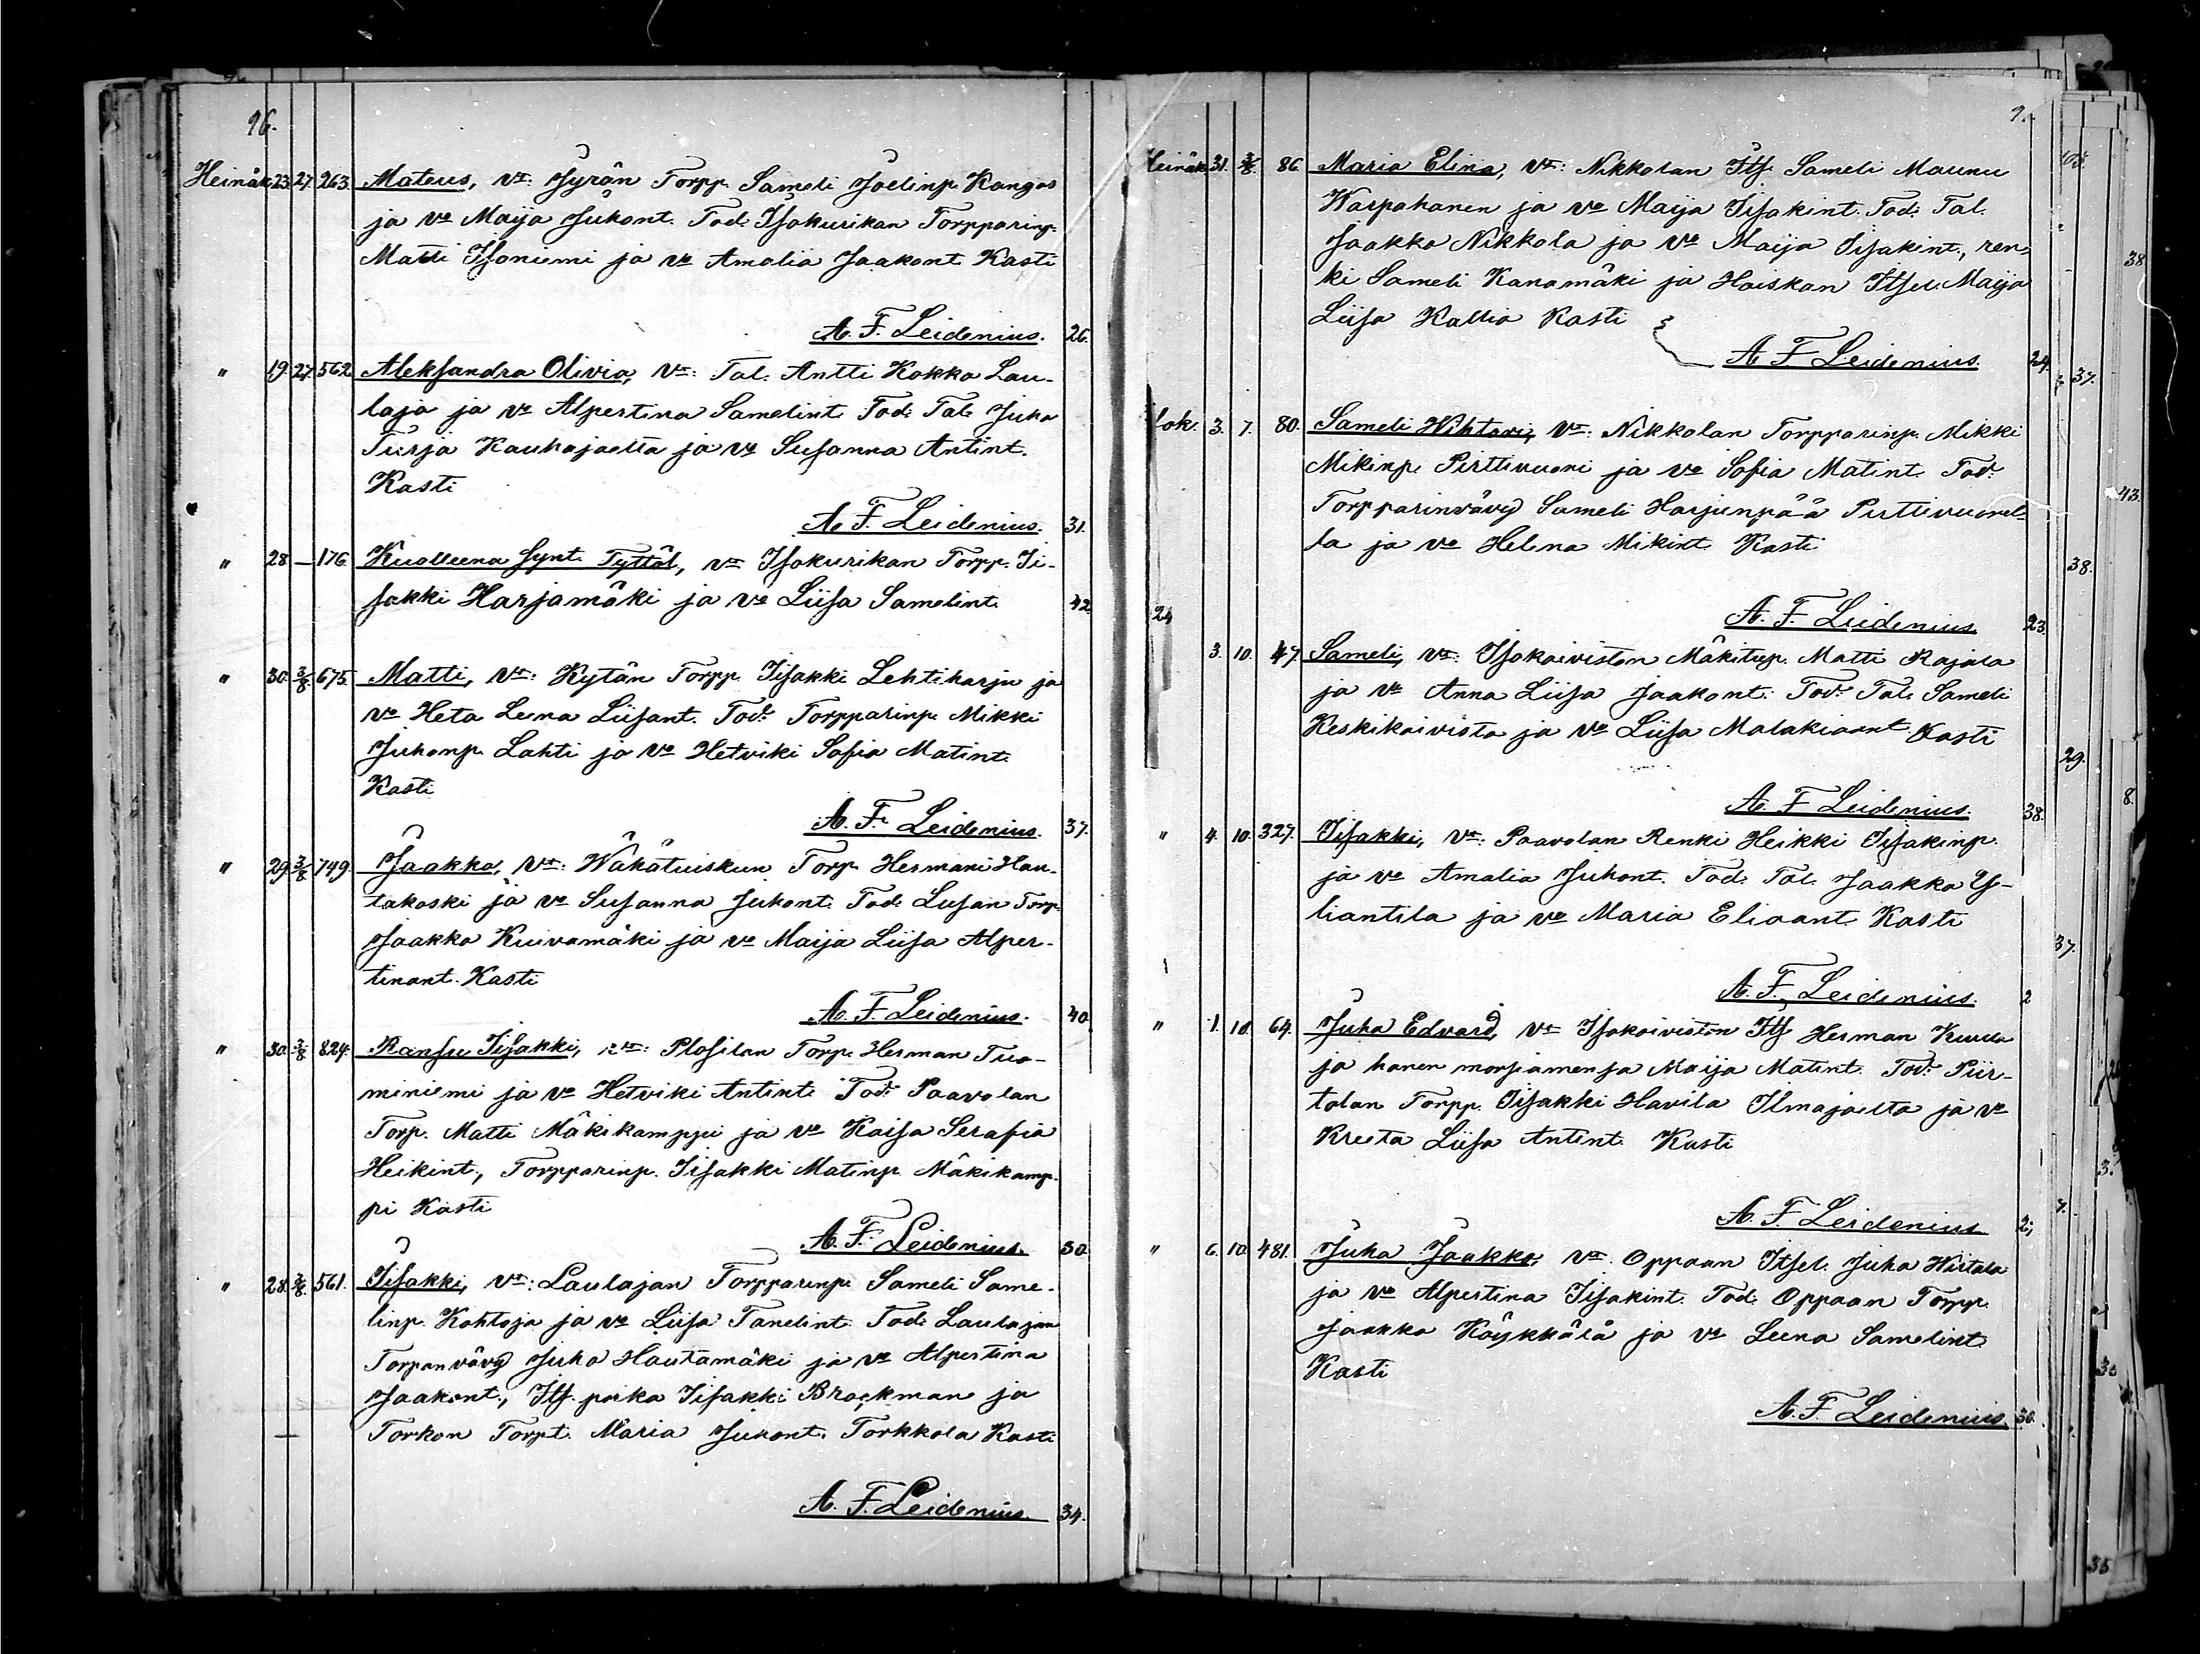 96.
Heinäk. 23 27. 263. Mateus, vt: Jyrän Torpp. Sameli Joelinp. Kangas
ja vo Maija Juhont. Tod. Isokurikan Torpparinp.
Matti Isoniemi ja vo Amalia Jaakont. Kasti
A. F. Leidenius. 26.
" 19 27. 562 Aleksandra Olivia, vt: Tal. Antti Kokko Lau-
laja ja vo Alpertina Samelint. Tod: Tal. Juha
Turja Kauhajoelta ja vo Susanna Antint.
Kasti
A. F. Leidenius. 31.
" 28 — 176. Kuolleena synt. Tyttöl., vt Isokurikan Torpp. Ii-
sakki Harjamäki ja vo Liisa Samelint. 42
" 30. 3/8. 675. Matti, vt: Kytän Torpp. Iisakki Lehtiharju ja
vo Heta Leena Liisant. Tod: Torpparinp. Mikki
Juhonp. Lahti ja vo Hetviki Sofia Matint.
Kasti
A. F. Leidenius. 37.
" 29. 3/8 749. Jaakko, vt: Wäkätuiskun Torp. Hermani Hau-
takoski ja vo Susanna Juhont. Tod: Lusan Torp.
Jaakko Kuivamäki ja vo Maija Liisa Alper-
tinant. Kasti
A. F. Leidenius. 40.
" 30. 3/8 824. Ransu Iisakki, vt: Plosilan Torp. Herman Tuo-
miniemi ja vo Hetviki Antint. Tod: Paavolan
Torp. Matti Mäkikamppi ja vo Kaisa Serafia
Heikint., Torpparinp. Iisakki Matinp. Mäkikamp-
pi Kasti
A. F. Leidenius. 30.
" 28. 3/8. 561. Iisakki, vt: Laulajan Torpparinp. Sameli Same-
linp. Kohtoja ja vo Liisa Tanelint. Tod: Laulajan
Torpanvävy Juha Hautamäki ja vo Alpertina
Jaakont., Its. poika Iisakki Brockman ja
Torkon Torpt. Maria Juhont. Torkkola Kasti
A. F. Leidenius. 34.
9.
Heinäk. 31. 3/8. 86. Maria Elina, vt: Nikkolan Its. Sameli Maunu
Warpahanen ja vo Maija Iisakint. Tod: Tal.
Jaakko Nikkola ja vo Maija Iisakint., ren-
ki Sameli Kanamäki ja Hoiskan Itsel. Maija
Liisa Kallio Kasti
A. F. Leidenius. 24.
lok. 3. 7. 80. Sameli Wihtori, vt: Nikkolan Torpparinp. Mikki
Mikinp. Pirttivuori ja vo Sofia Matint. Tod:
Torpparinvävy Sameli Harjunpää Pirttivuorel-
ta ja vo Helena Mikint. Kasti
A. F. Leidenius. 23.
24
3. 10. 47. Sameli, vt: Isokoiviston Mäkitup. Matti Rajala
ja vo Anna Liisa Jaakont. Tod: Tal. Sameli
Keskikoivisto ja vo Liisa Malakiaant. Kasti
A. F. Leidenius. 38.
" 4. 10. 327. Iisakki, vt: Paavolan Renki Heikki Iisakinp.
ja vo Amalia Juhont. Tod: Tal. Jaakko Y-
liantila ja vo Maria Eliaant. Kasti
A. F. Leidenius. 2
" 1. 10. 64. Juha Edvard, vt Isokoiviston Its Herman Kurla
ja hänen morsiamensa Maija Matint. Tod: Piir-
tolan Torpp. Iisakki Havila Ilmajoelta ja vo
Kreeta Liisa Antint. Kasti
A. F. Leidenius.
" 6. 10. 481. Juha Jaakko, vt Oppaan Itsel. Juha Wirtala
ja vo Alpertina Iisakint. Tod: Oppaan Torpp.
Jaakko Köykkälä ja vo Leena Samelint.
Kasti
A. F. Leidenius 30.
38
37.
43.
38.
29.
8.
37.
3.
7.
35